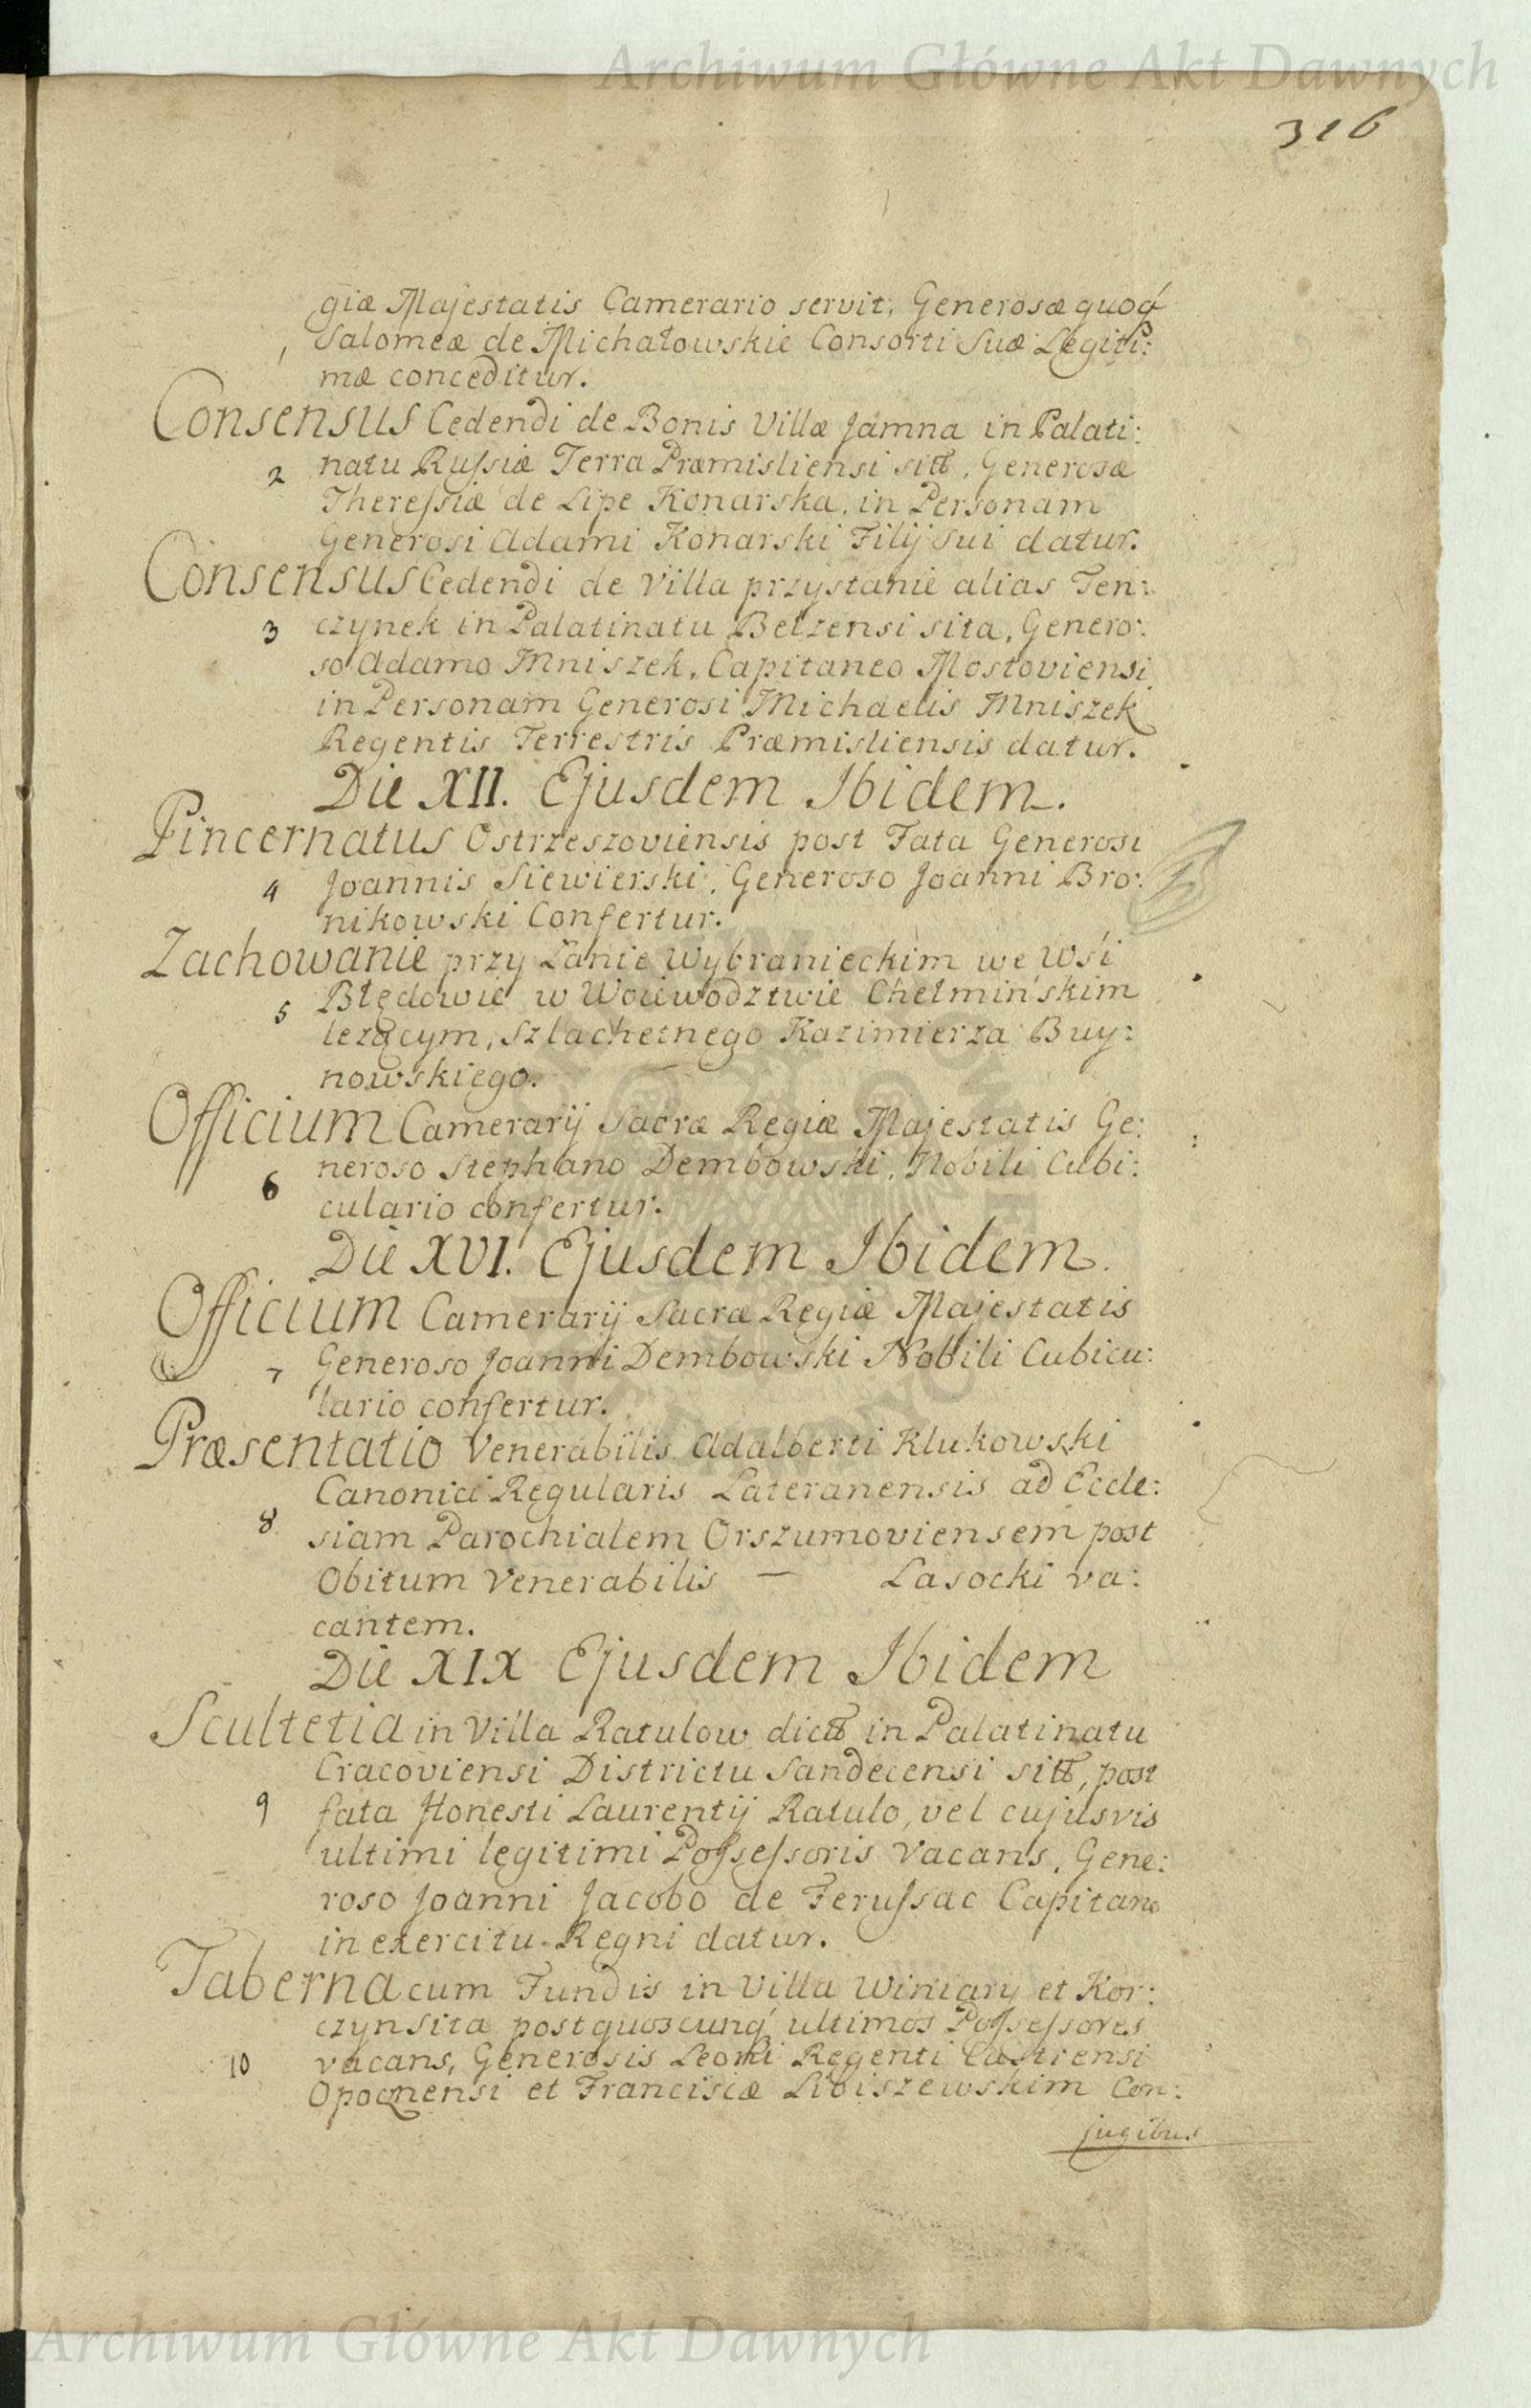 Archiwum Główne Akt Dawnych
316
giæ Majestatis Camerario servit, Generosæ quoq́
1 Salomeæ de Michałowskie Consorti Suæ Legiti:
mæ conceditur.
Consensus Cedendi de Bonis Villæ Jamna in Palati:
2 natu Russiæ Terra Præmisliensi sitt, Generosæ
Theressiæ de Lipe Konarska, in Personam
Generosi Adami Konarski Filij Sui datur.
Consensus Cedendi de Villa przystanie alias Ten:
3 czynek in Palatinatu Bełzensi sita, Genero:
so Adamo Mniszek, Capitaneo Mostoviensi
in Personam Generosi Michaelis Mniszek
Regentis Terrestris Præmisliensis datur.
Die XII. Ejusdem Ibidem.
Pincernatus Ostrzeszoviensis post Fata Generosi
4 Joannis Siewierski, Generoso Joanni Bro:
nikowski Confertur.
Zachowanie przy Łanie Wybranieckim we Wśi
5 Błędowie w Woiewodztwie Chełmińskim
lezącym, Szlachetnego Kazimierza Buy:
nowskiego.
Officium Camerarij Sacræ Regiæ Majestatis Ge:
6 neroso Stephano Dembowski, Nobili Cubi:
culario confertur.
Die XVI. Ejusdem Ibidem.
Officium Camerarij Sacræ Regiæ Majestatis
7 Generoso Joanni Dembowski Nobili Cubicu:
lario confertur.
Præsentatio Venerabilis Adalberti Klukowski
Canonici Regularis Lateranensis ad Eccle:
8 siam Parochialem Orszumoviensem post
Obitum Venerabilis — Lasocki va:
cantem.
Die XIX Ejusdem Ibidem
Scultetia in Villa Ratulow dictt in Palatinatu
Cracoviensi Districtu Sandecensi sitt, post
9 fata Honesti Laurentij Ratulo, vel cujusvis
ultimi legitimi Possessoris vacans, Gene:
roso Joanni Jacobo de Ferussac Capitano
in exercitu Regni datur.
Taberna cum Fundis in Villa Winiary et Kor:
czyn sita post quoscunq́ ultimos Possessores
10 vacans, Generosis Leoni Regenti Castrensi
Opocnensi et Francisiæ Libiszewskim Con:
jugibus
Archiwum Główne Akt Dawnych